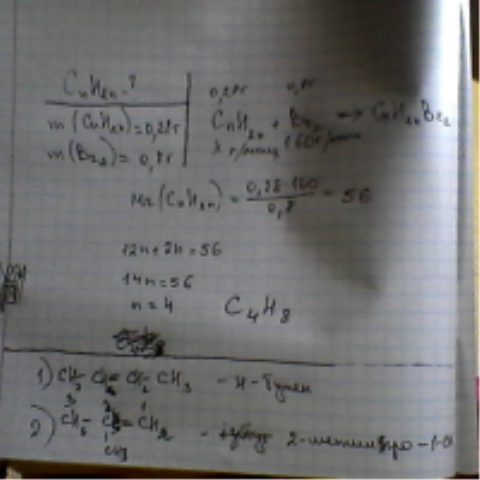 CnH2n - ?
m(CnH2n) = 0,28г
m(Br2) = 0,8г
0,28г 0,8г
CnH2n + Br2 → CnH2nBr2
x г/моль 160 г/моль
Mr(CnH2n) = 0,28·160 / 0,8 = 56
12n + 2n = 56
14n = 56
n = 4 C4H8
1) CH3 CH = CH - CH3 - н-бутен
2) CH3 - C = CH2 -
CH3